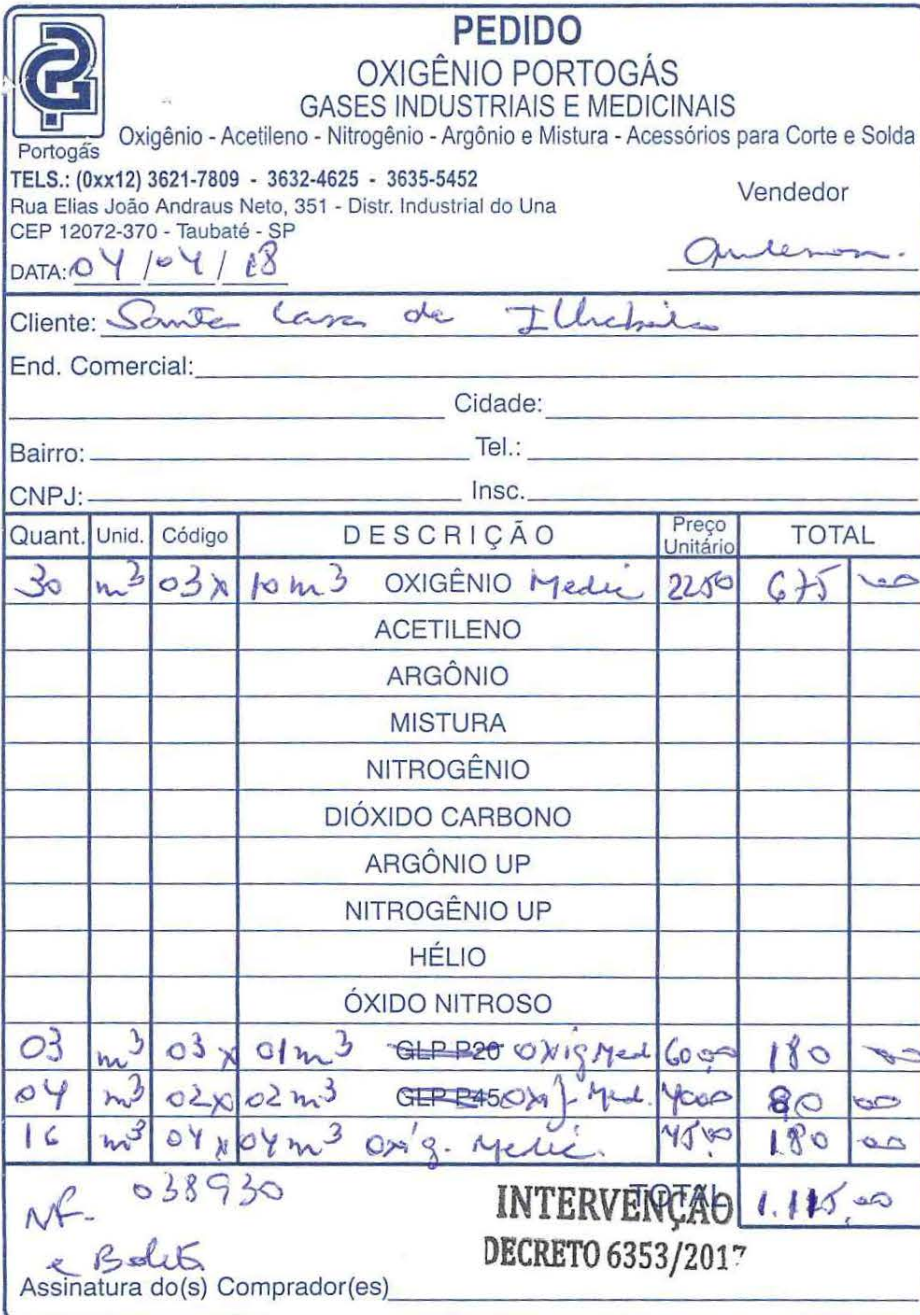 PEDIDO
OXIGÊNIO PORTOGÁS
GASES INDUSTRIAIS E MEDICINAIS
Oxigênio - Acetileno - Nitrogênio - Argônio e Mistura - Acessórios para Corte e Solda
Portogás
TELS.: (0xx12) 3621-7809 - 3632-4625 - 3635-5452
Rua Elias João Andraus Neto, 351 - Distr. Industrial do Una
CEP 12072-370 - Taubaté - SP
Vendedor
DATA: 04/04/18 Anderson.
Cliente: Santa Casa de Ilhabela
End. Comercial:
Cidade:
Bairro: Tel.:
CNPJ: Insc.
Quant. Unid. Código DESCRIÇÃO Preço Unitário TOTAL
30 m3 03 x 10 m3 OXIGÊNIO Medic 2250 675 00
ACETILENO
ARGÔNIO
MISTURA
NITROGÊNIO
DIÓXIDO CARBONO
ARGÔNIO UP
NITROGÊNIO UP
HÉLIO
ÓXIDO NITROSO
03 m3 03 x 01 m3 GLP P20 Oxig Med 60,00 180 00
04 m3 02 x 02 m3 GLP P45 Oxig. Med. 4000 80 00
16 m3 04 x 04 m3 Oxig. Medic. 45,00 180 00
NF- 038930 TOTAL 1.115,00
e Boleto
INTERVENÇÃO
DECRETO 6353/2017
Assinatura do(s) Comprador(es)